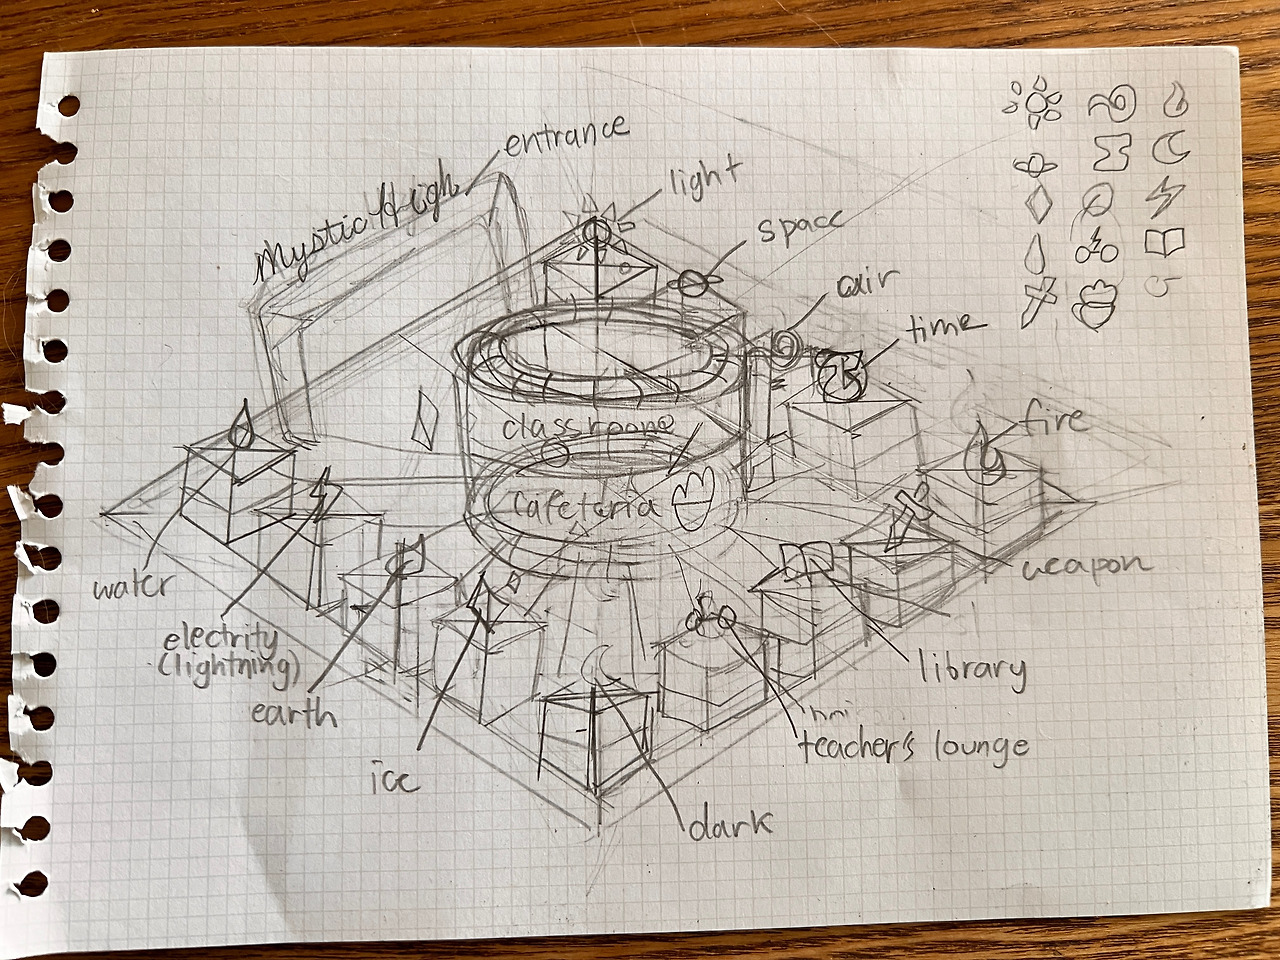 entrance
Mystic High
light
space
air
time
fire
classroone
cafeteria
weapon
water
electrity
(lightning)
earth
ice
library
teacher's lounge
dark